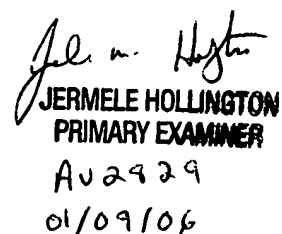 JERMELE HOLLINGTON
PRIMARY EXAMINER
AU2829
01/09/06